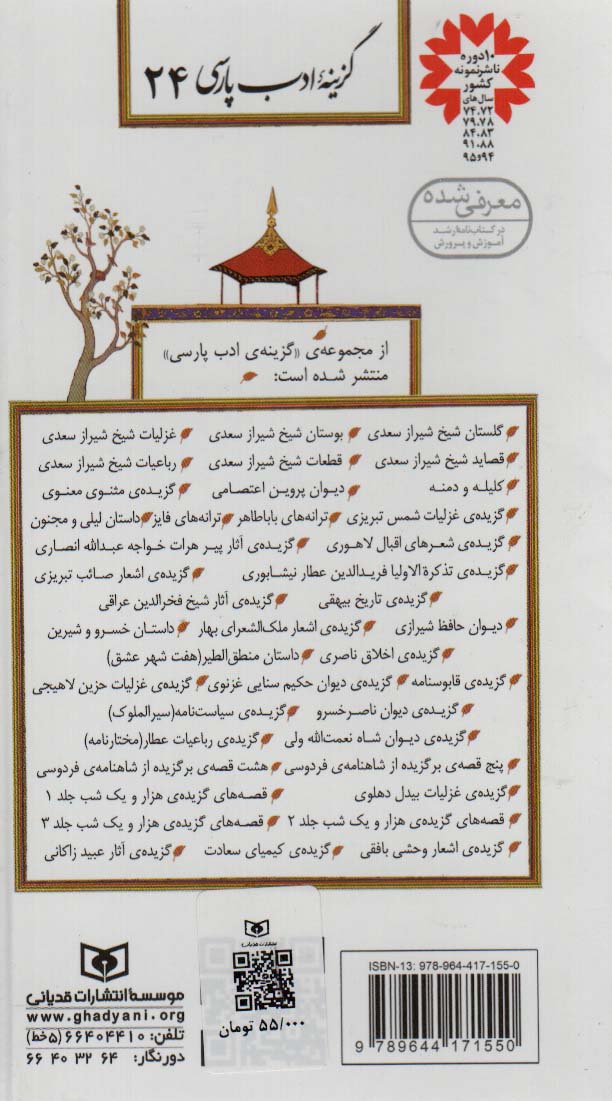 گزینهٔ ادب پارسی ۲۴
۱۰ دوره
ناشر نمونه
کشور
سال‌های
۷۴،۷۲
۷۹،۷۸
۸۴،۸۳
۹۱،۸۸
۹۴و۹۵
معرفی شده
در کتاب‌نامه رشد
آموزش و پرورش
از مجموعه‌ی «گزینه‌ی ادب پارسی»
منتشر شده است:
گلستان شیخ شیراز سعدی بوستان شیخ شیراز سعدی غزلیات شیخ شیراز سعدی
قصاید شیخ شیراز سعدی قطعات شیخ شیراز سعدی رباعیات شیخ شیراز سعدی
کلیله و دمنه دیوان پروین اعتصامی گزیده‌ی مثنوی معنوی
گزیده‌ی غزلیات شمس تبریزی ترانه‌های باباطاهر ترانه‌های فایز داستان لیلی و مجنون
گزیده‌ی شعرهای اقبال لاهوری گزیده‌ی آثار پیر هرات خواجه عبدالله انصاری
گزیده‌ی تذکرة الاولیا فریدالدین عطار نیشابوری گزیده‌ی اشعار صائب تبریزی
گزیده‌ی تاریخ بیهقی گزیده‌ی آثار شیخ فخرالدین عراقی
دیوان حافظ شیرازی گزیده‌ی اشعار ملک‌الشعرای بهار داستان خسرو و شیرین
گزیده‌ی اخلاق ناصری داستان منطق‌الطیر(هفت شهر عشق)
گزیده‌ی قابوسنامه گزیده‌ی دیوان حکیم سنایی غزنوی گزیده‌ی غزلیات حزین لاهیجی
گزیده‌ی دیوان ناصرخسرو گزیده‌ی سیاست‌نامه(سیرالملوک)
گزیده‌ی دیوان شاه نعمت‌الله ولی گزیده‌ی رباعیات عطار(مختارنامه)
پنج قصه‌ی برگزیده از شاهنامه‌ی فردوسی هشت قصه‌ی برگزیده از شاهنامه‌ی فردوسی
گزیده‌ی غزلیات بیدل دهلوی قصه‌های گزیده‌ی هزار و یک شب جلد ۱
قصه‌های گزیده‌ی هزار و یک شب جلد ۲ قصه‌های گزیده‌ی هزار و یک شب جلد ۳
گزیده‌ی اشعار وحشی بافقی گزیده‌ی کیمیای سعادت گزیده‌ی آثار عبید زاکانی
ISBN-13: 978-964-417-155-0
9 789644 171550
انتشارات قدیانی
۵۵/۰۰۰ تومان
موسسهٔ انتشارات قدیانی
www.ghadyani.org
تلفن: ۶۶۴۰۴۴۱۰ (۵خط)
دورنگار: ۶۶ ۴۰ ۳۲ ۶۴